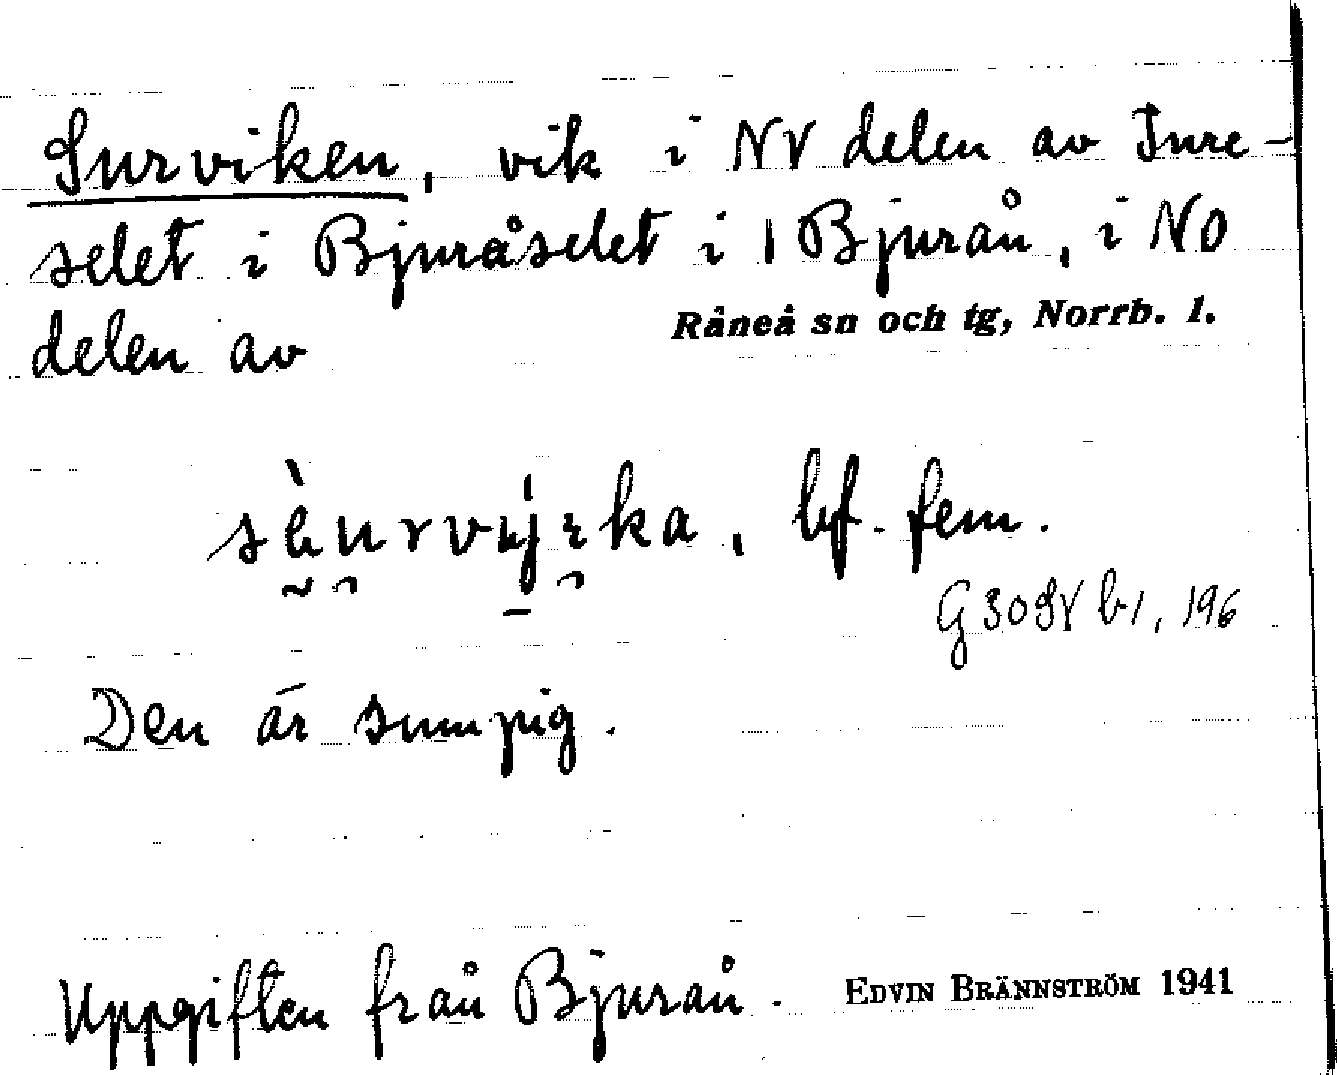 Surviken, vik i NV delen av Inre-
selet i Bjuråselet i 1 Bjurån, i NO
delen av Råneå sn och tg, Norrb. l.
bf. fem.
G 30 SV b 1, 196
Den är sumpig.
Uppgiften från Bjurån. EDVIN BRÄNNSTRÖM 1941